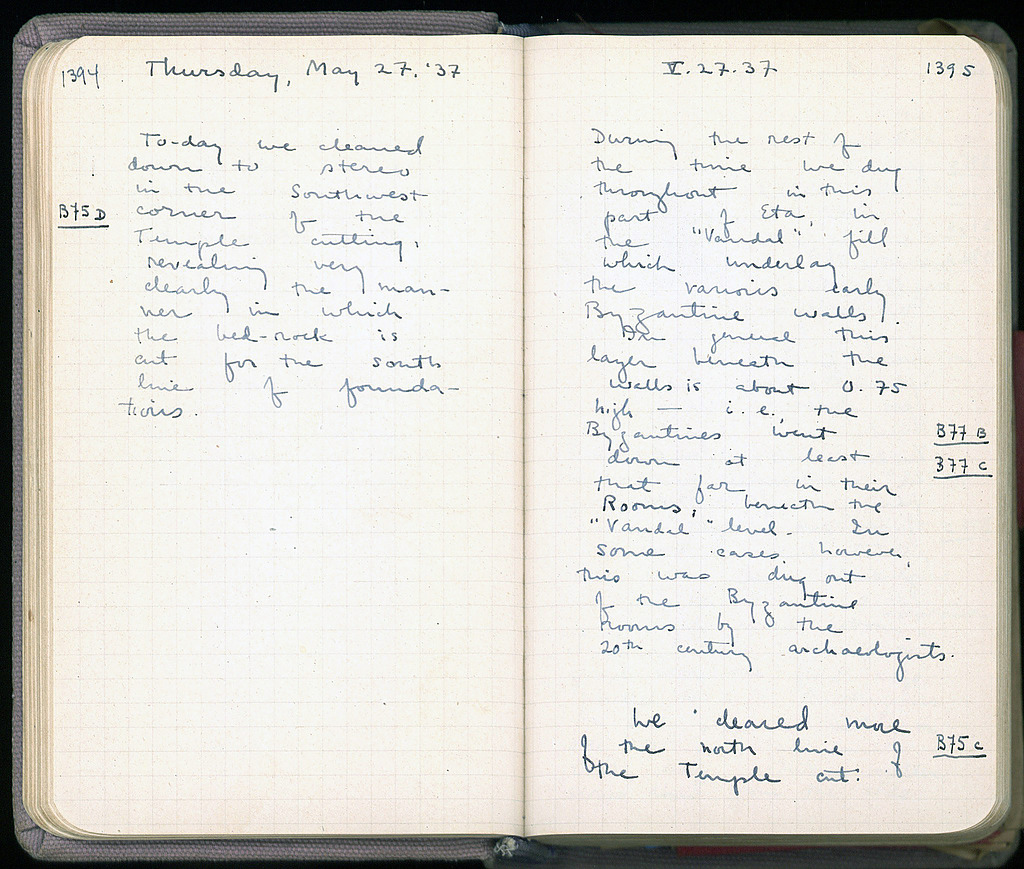 1394 Thursday, May 27, '37
To-day we cleaned
down to stereo
in the Southwest
B75 D
corner of the
Temple cutting,
revealing very
clearly the man-
ner in which
the bed-rock is
cut for the south
line of founda-
tions.
V. 27. 37 1395
During the rest of
the time we dug
throughout in this
part of Eta, in
the "Vandal" fill
which underlay
the various early
Byzantine walls.
In general this
layer beneath the
walls is about 0.75
high — i.e., the
Byzantines went
B77 B
down at least
B77 C
that far in their
Rooms, beneath the
"Vandal" level. In
some cases, however,
this was dug out
of the Byzantine
rooms by the
20th century archaeologists.
We cleared more
of the north line of
B75 C
the Temple cut.